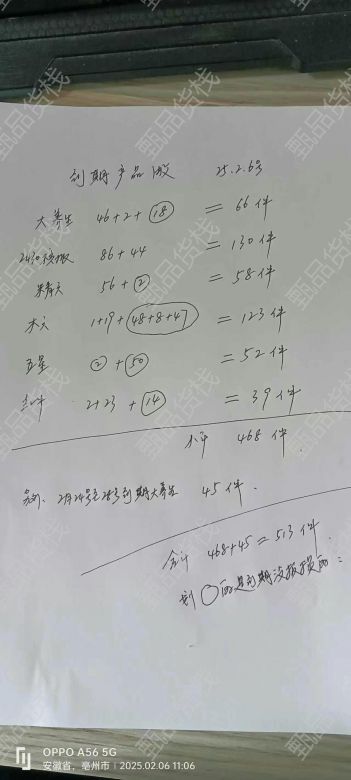 到期产品11反 25.2.6号
大养生 46+2+18 = 66件
2430核报 86+44 = 130件
56+2 = 58件
木之 1+19+48+8+47 = 123件
五星 2+50 = 52件
2+23+14 = 39件
小计 468件.
另外、2月24号至28号到期大养生 45件.
合计 468+45=513件.
划〇的是到期没报损的:
OPPO A56 5G
安徽省,亳州市 | 2025.02.06 11:06
甄品货栈